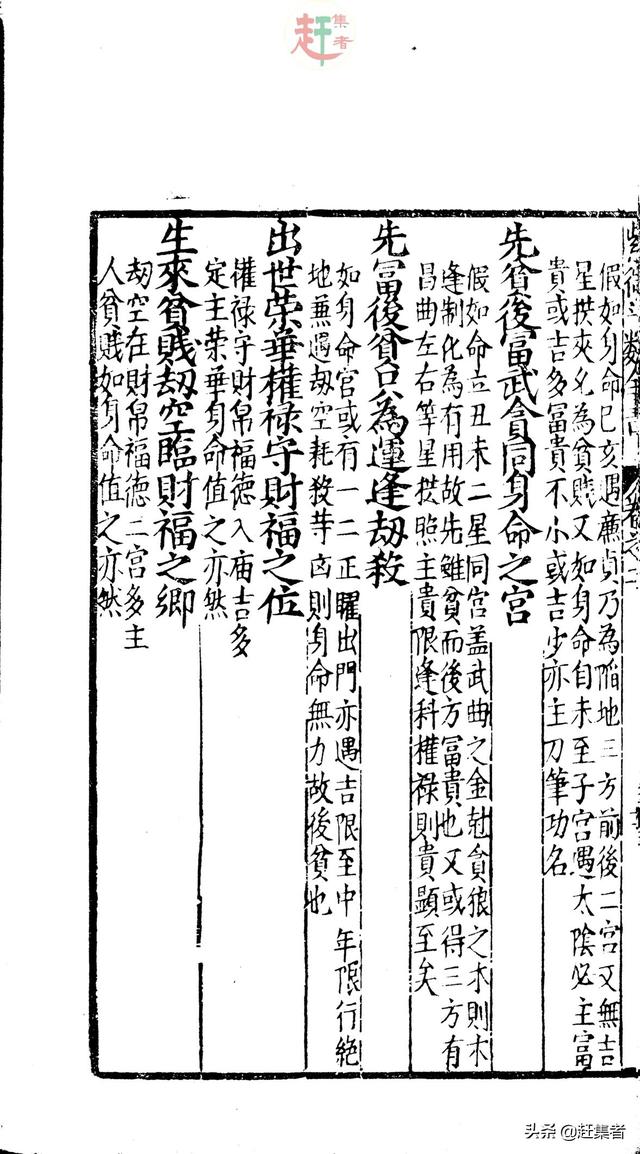 赶集者
假如身命巳亥遇廉貞乃為陷地三方前後二宮又無吉
星拱夾必為貧賤又如身命自未至子宮遇太陰必主富
貴或吉多冨貴不小或吉少亦主刀筆功名
先貧後冨武貪同身命之宮
假如命立丑未二星同宮盖武曲之金尅貪狼之木則木
逢制化為有用故先雖貧而後方冨貴也又或得三方有
昌曲左右等星拱照主貴限逢科權禄則貴顯至矣
先冨後貧只為運逢劫殺
如身命宮或有一二正曜出門亦遇吉限至中年限行絕
地兼遇劫空耗殺等凶則身命無力故後貧也
出世榮華權禄守財福之位
權禄守財帛福德入廟吉多
定主荣華身命值之亦然
生來貧賤劫空臨財福之鄉
劫空在財帛福德二宮多主
人貧賤如身命值之亦然
头条 @赶集者